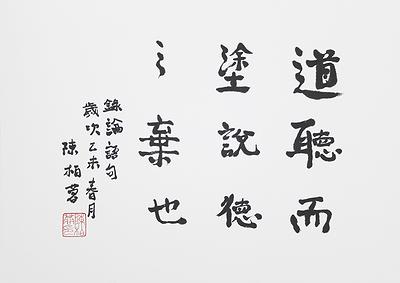 道聽而
塗說德
之棄也
錄論語句
歲次乙未春月
陳柏